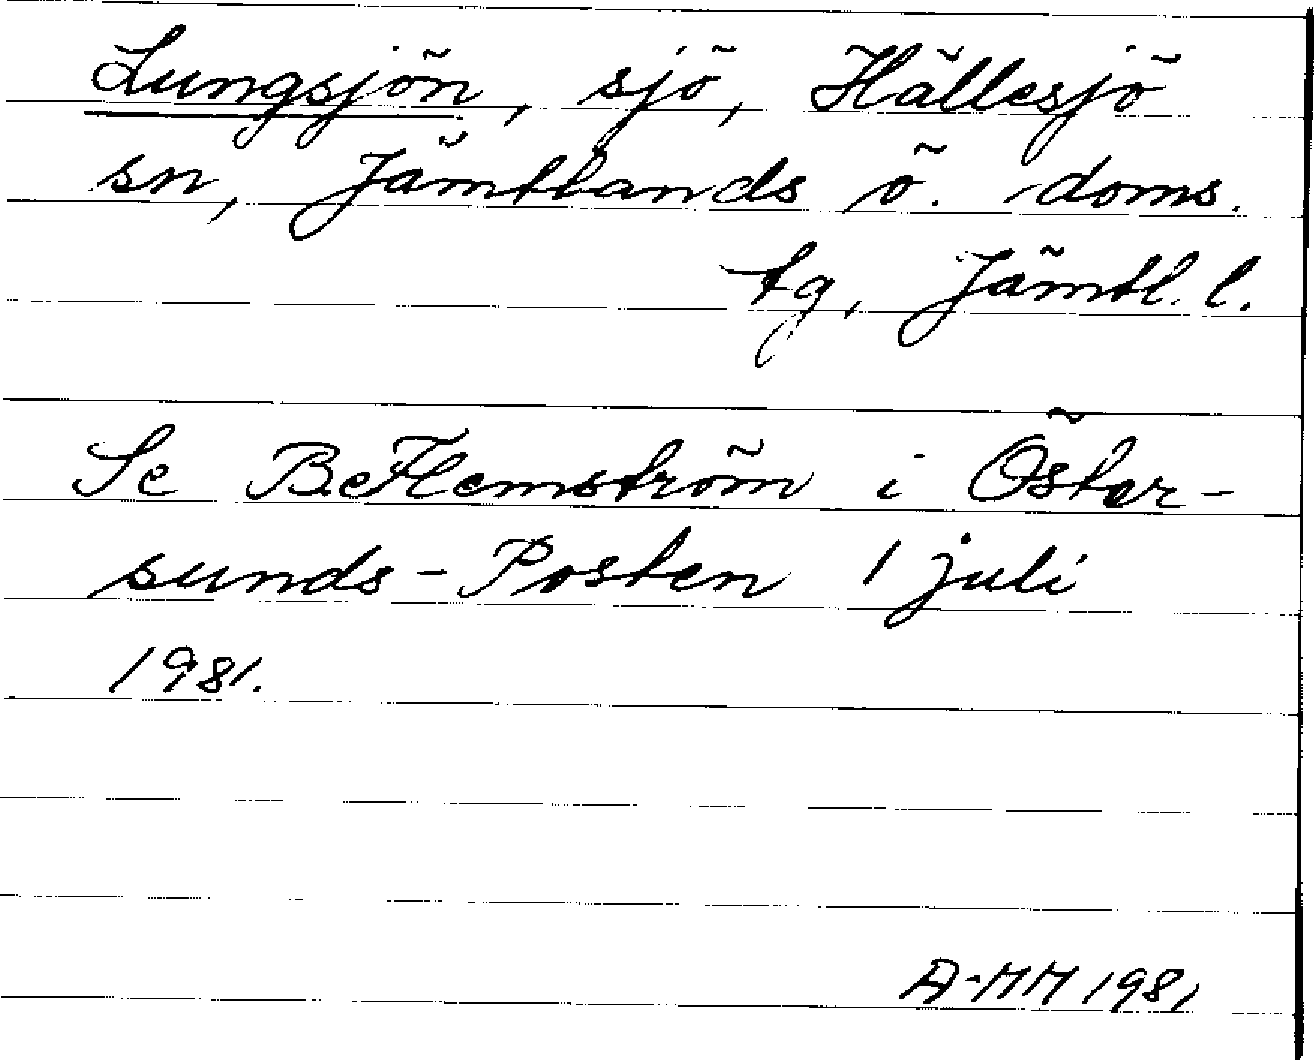 Lungsjön, sjö, Hällesjö
sn, Jämtlands ö. doms.
tg, Jämtl. l.
Se Be Flemström i Öster-
sunds-Posten 1 juli
1981.
A-MM 1981